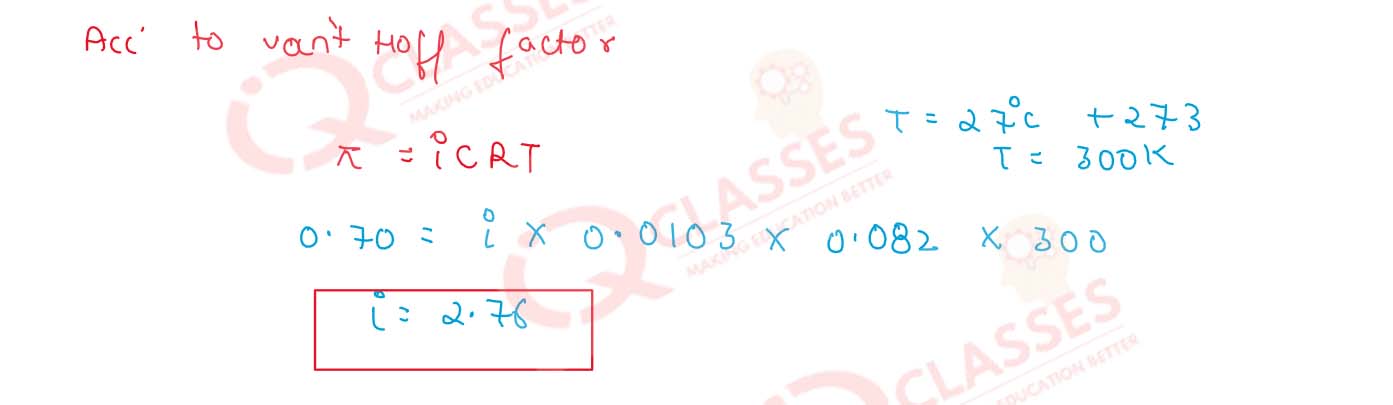 Acc' to van't Hoff factor
π = iCRT
T = 27°c + 273
T = 300K
0.70 = i × 0.0103 × 0.082 × 300
i = 2.76
IQ CLASSES
MAKING EDUCATION BETTER
IQ CLASSES
MAKING EDUCATION BETTER
CLASSES
EDUCATION BETTER